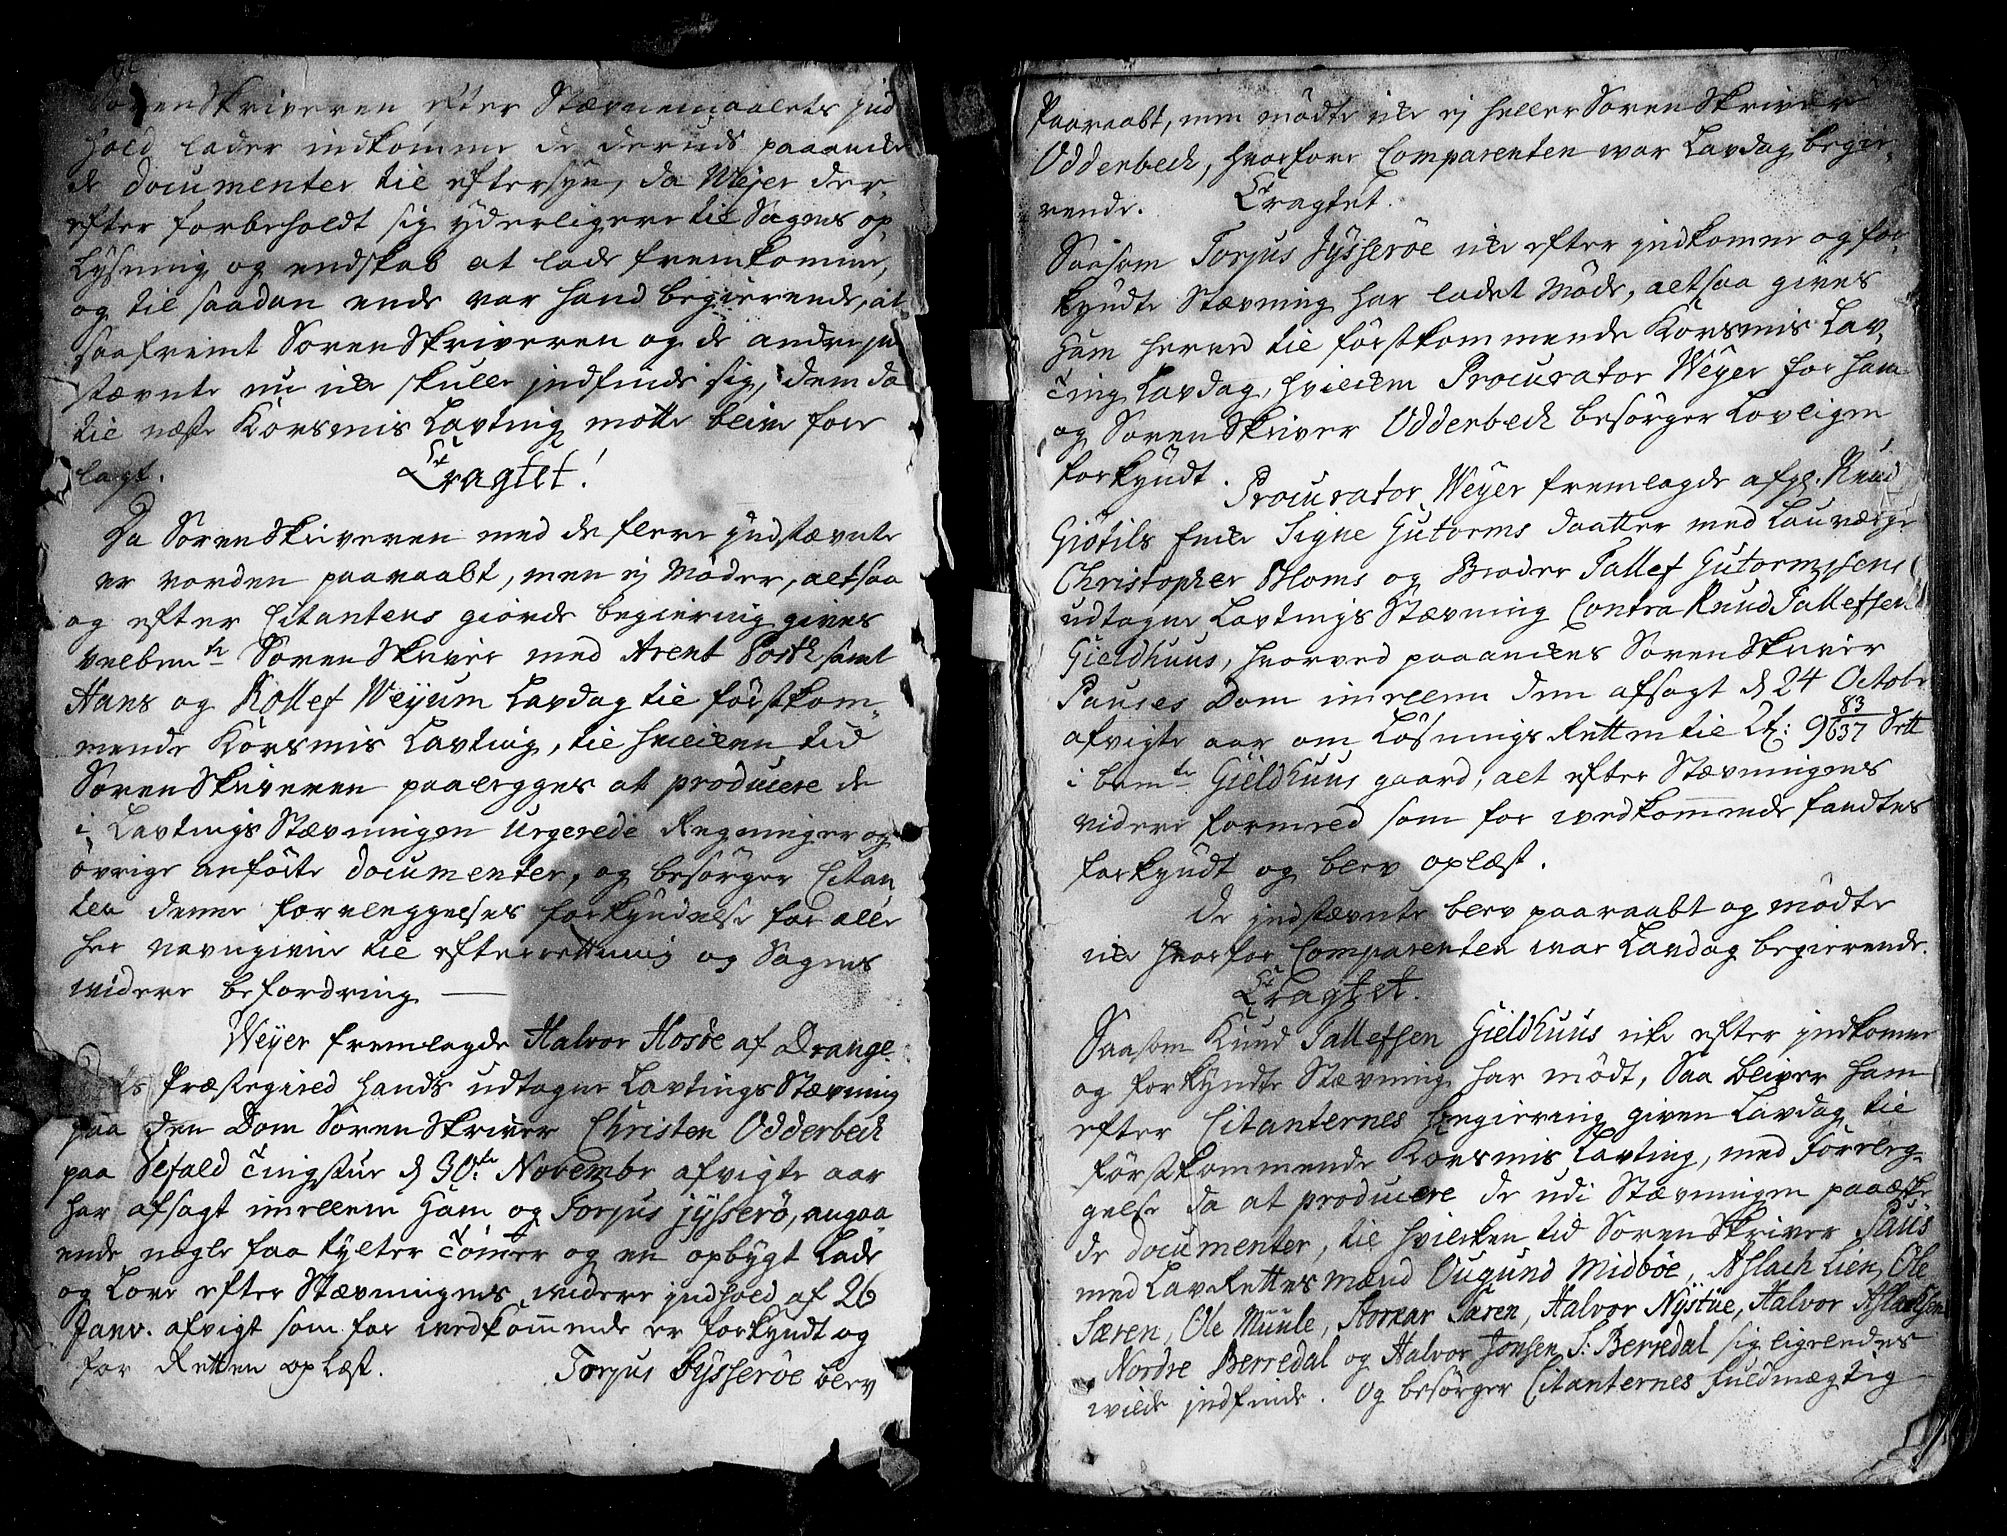 SorenSkriveren efter Stævnemaalets ind
hold lader indkomme de deruds paaancke
de documenter til eftersyn, da Weyer der-
efter forbeholdt sig yderligere til Sagens op
lysning og endskab at lade fremkomme,
og til saadan ende var hand begierende, at
saafremt SorenSkriveren og de andre jn
stævnte nu icke skulle jndfinde sig, dem da
til næste Korsmis Lavting motte blive fore
lagt.
Eragtet!
Da SorenSkriveren med de flere jndstævnte
er vorden paaraabt, men ej Møder, altsaa
og efter Citantens giorde begiering gives
velbemte SorenSkriver med Arent Post samt
Hans og Rollef Weyum Lavdag til førstkom-
mende Korsmis Lavting, til hvilcken tid
SorenSkriveren paalegges at producere de
i LavtingsStævningen Urgerede Regninger og
øvrige anførte documenter, og besørger Citan
ten denne foreleggelses forkyndelse for alle
her navngivne til efterretning og Sagens
widere befordring
Weyer fremlagde Halvor Hosøe af Drange-
dals Præstegield hands udtagne LavtingsStævning
paa den Dom SorenSkriver Christen Odderbech
paa Sefald Tingstue d 30te Novembr afvigte aar
har afsagt imellem ham og Torjus Jysserø, angaa-
ende nogle faa tylter Tømer og en opbygt Lade
og Love efter Stævningens widere jndhold af 26
Janv. afvigt som for wedkommende er forkyndt og
for Retten oplæst.
Torjus Jysserøe blev
Paaraabt, men mødte icke ej heller SorenSkriver
Odderbech, hvorfore Comparenten war Lavdag begie-
rende.
Eragtet.
Saasom Torjus Jysserøe icke efter jndkomme og for
kyndte Stævning har ladet Møde, altsaa gives
ham herved til førstkommende Korsmis Lav-
ting Lavdag, hvilcken Procurator Weyer for ham
og SorenSkriver Odderbech besørger Lovligen
forkyndt.
Procurator Weyer fremlagde afg. Knud
Giøtils Encke Signe Gutorms daatter med Lauværge
Christopher Bloms og Broder Tallef Gutormsens
udtagne LavtingsStævning Contra Knud Tallefsen
Gieldhuus, hvorved paaanckes SorenSkriver
Pauses Dom imellem dem afsagt d 24 Octobr
afvigte aar om LøsningsRetten til 9 83/637 Sett
i bemte Gieldhuus gaard, alt efter Stævningens
videre formeld som for wedkommende fandtes
forkyndt og blev oplæst.
De jndstævnte blev paaraabt og mødte
icke hvorfor Comparenten war Lavdag begierende.
Eragtet.
Saasom Knud Tallefsen Gieldhuus icke efter jndkomme
og forkyndte Stævning har mødt, Saa bliver ham
efter Citanternes begiering given Lavdag til
førstkommende Korsmis Lavting, med Foreleg-
gelse da at producere de udi Stævningen paaæske
de documenter, til hvilcken tid SorenSkriver Paus
med LavRettesmænd Ougund Midbøe, Aslach Lien, Ole
Særen, Ole Muule, Særen, Halvor Nystue, Halvor Aslachsen
Nordre Berredal og Halvor Jonsen S: Berredal sig ligeledes
wilde jndfinde. Og besørger Citanternes fuldmægtig